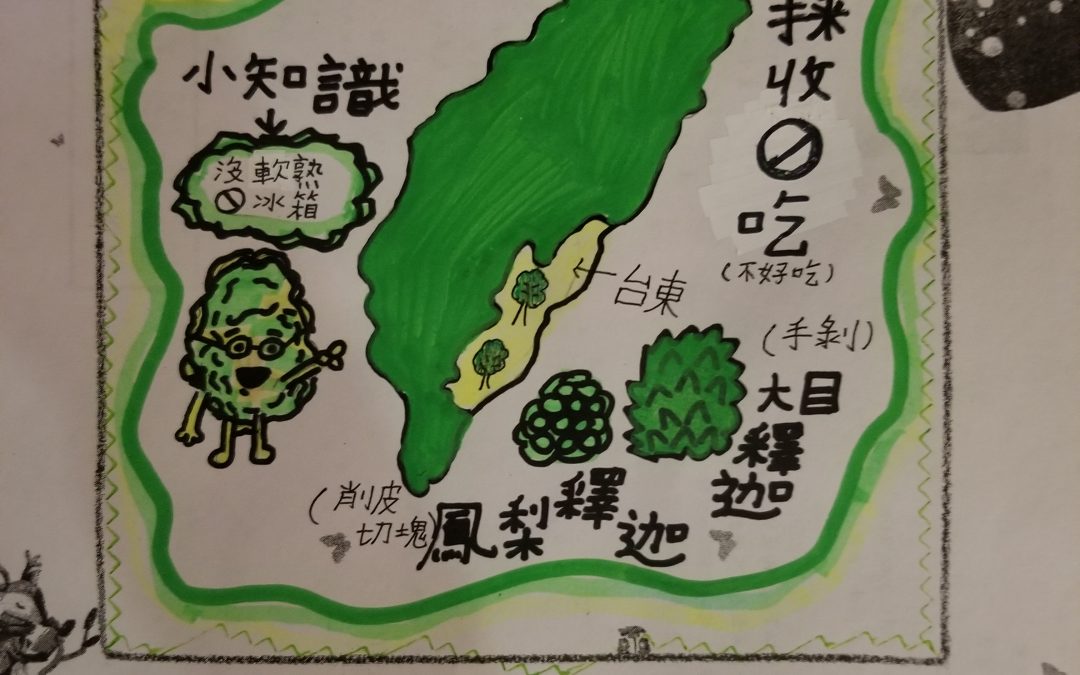 小知識
沒軟熟
冰箱
採
收
吃
(不好吃)
台東
(手剝)
大目
釋
迦
(削皮
切塊)
鳳梨釋迦